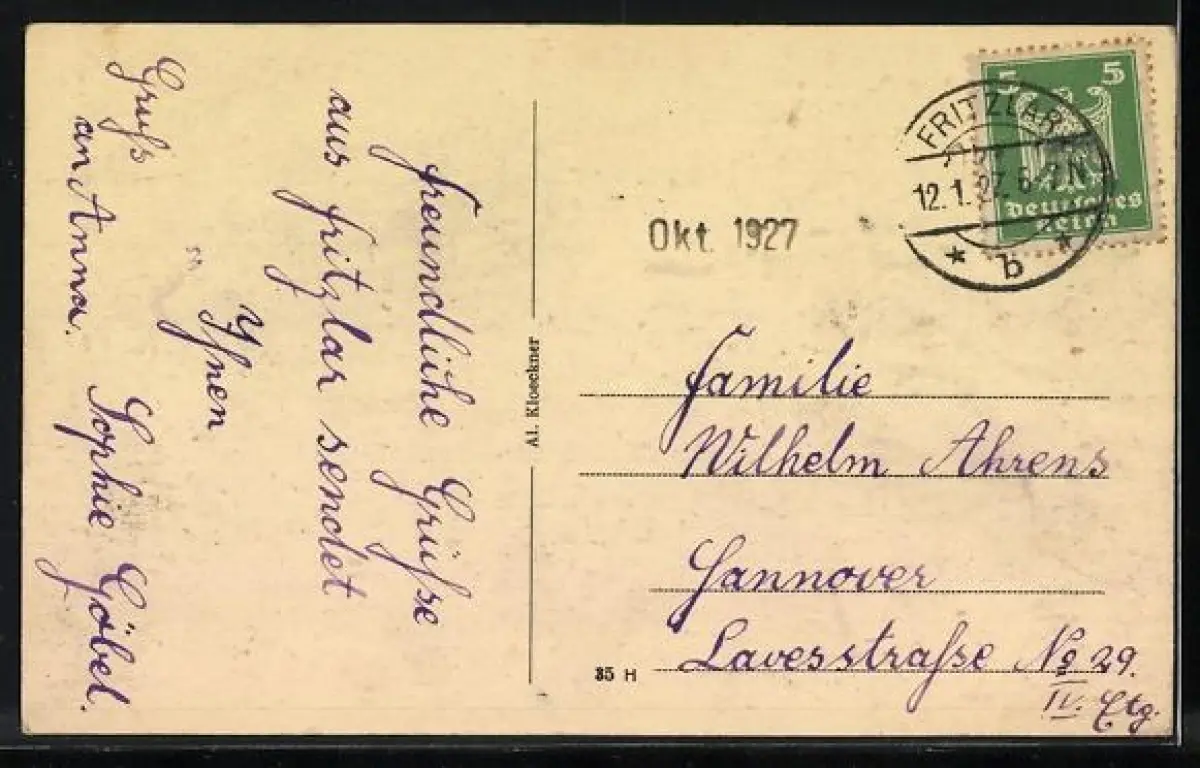 freundliche Grüße
aus fritzlar sendet
Ihnen
Sophie Göbel.
Gruß
an Anna.
Al. Kloeckner
5 5
Deutsches
Reich
FRITZLAR
12.1.27. 6-7N
* b *
Okt. 1927
Familie
Wilhelm Ahrens
Hannover
Lavesstraße No 29.
IV. Etg.
35 H